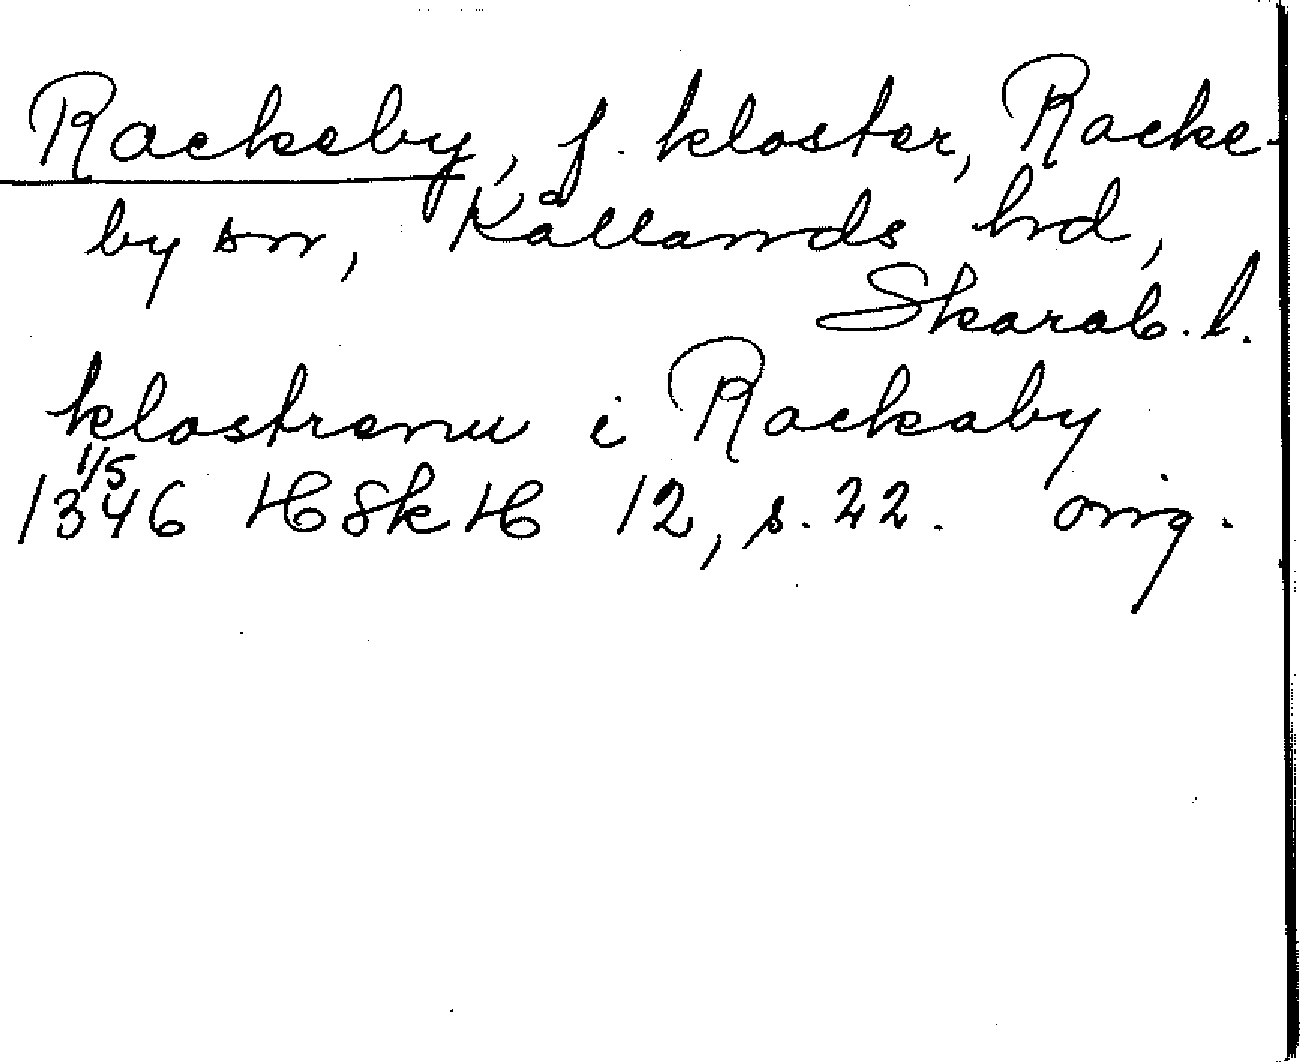 Rackeby, f. kloster, Racke-
by sn, Kållands hd,
Skarab. l.
klostrenu i Rackaby
1/5
1346 HSkH 12, s. 22. orig.